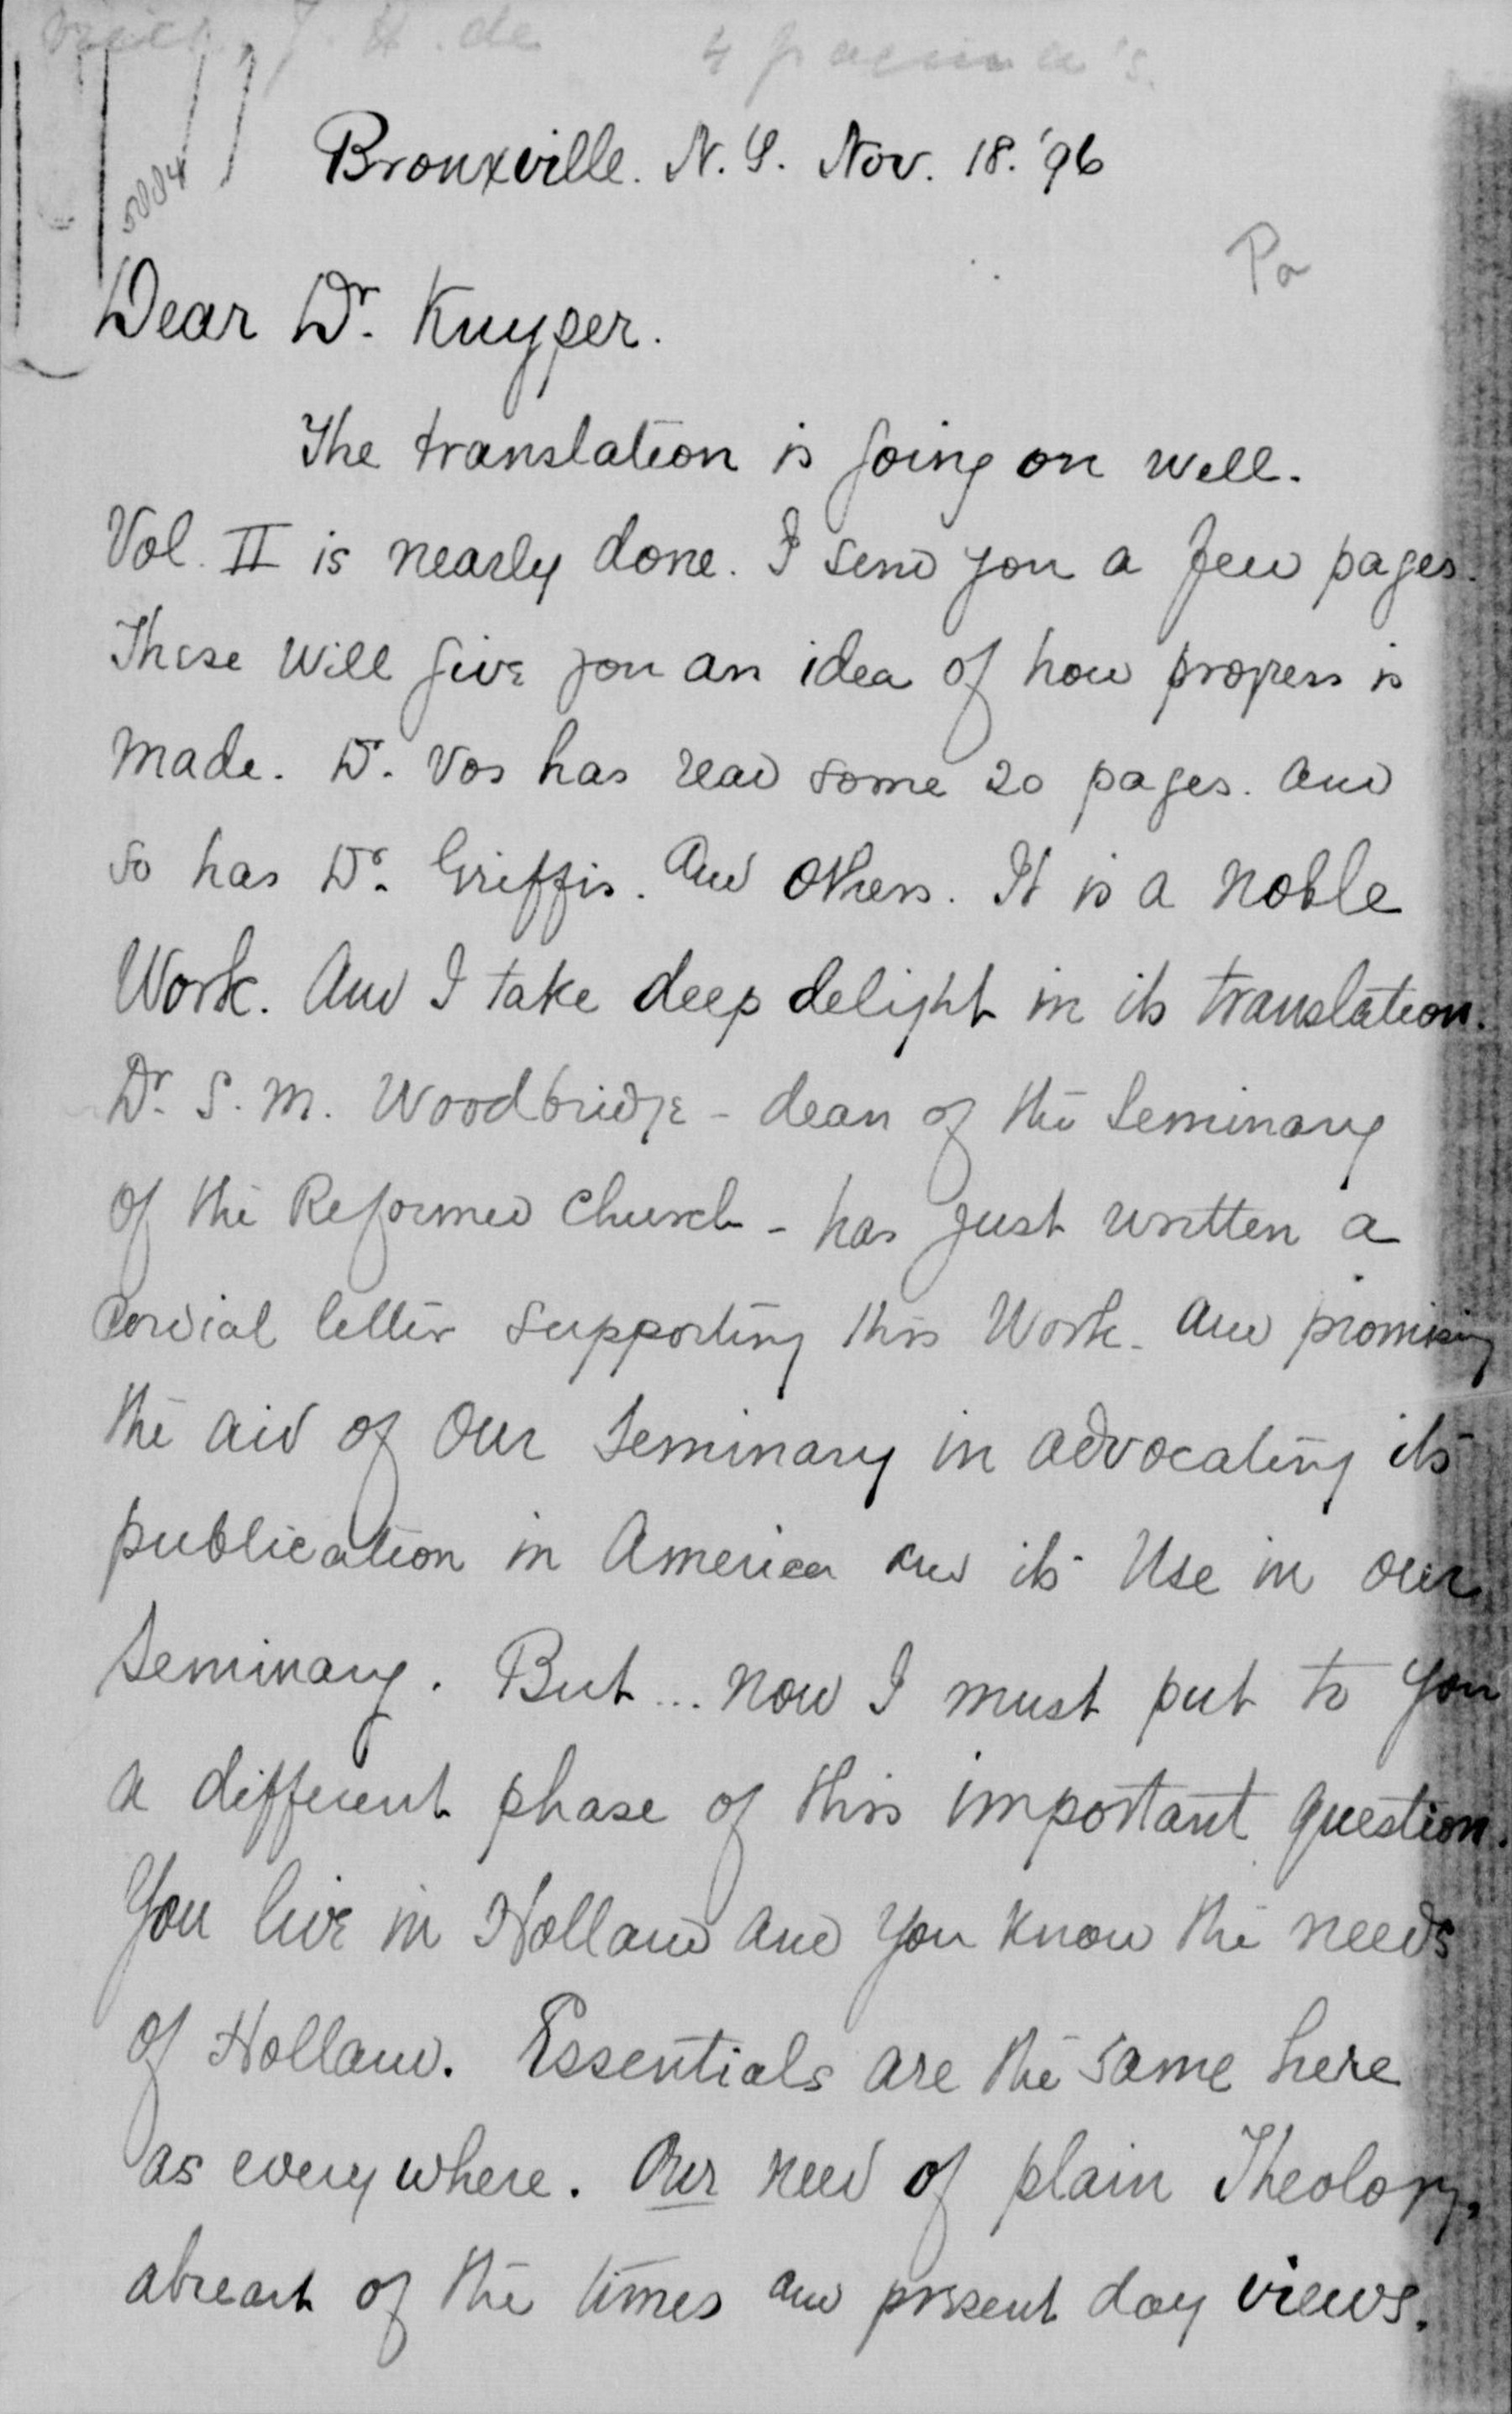 Vries, J. H. de 4 pagina's.
5884
Bronxville. N. Y. Nov. 18. '96
Pa
Dear Dr. Kuyper.
The translation is going on well.
Vol. II is nearly done. I send you a few pages.
These will give you an idea of how progress is
made. Dr. Vos has read some 20 pages. and
so has Dr. Griffis. And others. It is a noble
Work. And I take deep delight in its translation.
Dr. S. M. Woodbridge - dean of the Seminary
of the Reformed Church - has just written a
Cordial letter supporting this Work. and promising
the aid of Our Seminary in advocating its
publication in America and its Use in our
Seminary. But ... now I must put to you
a different phase of this important question.
You live in Holland and you know the needs
of Holland. Essentials are the same here
as everywhere. Our need of plain Theology,
abreast of the times and present day views.